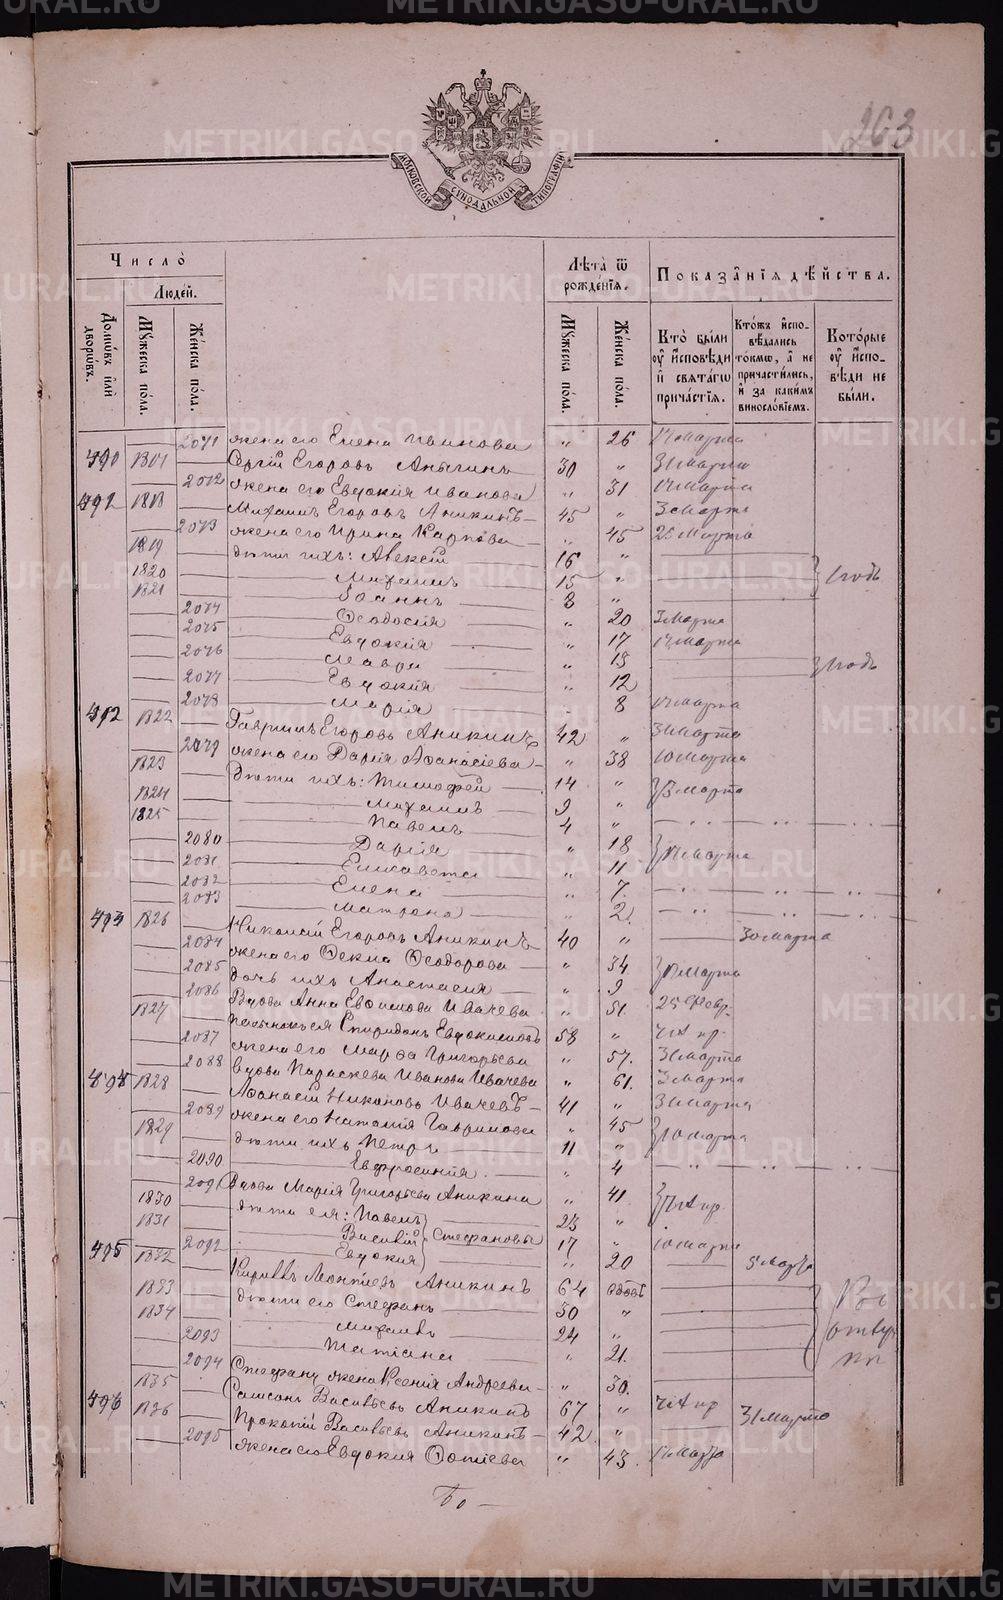 263
МОСКОВСКОЙ СѴНОДАЛЬНОЙ ТИПОГРАФІИ
Число̀
Людей.
Домѡвъ и҆лѝ дворѡвъ.
Мꙋжеска пола.
Же́нска по́ла.
Лѣта̀ ѿ рожде́нїѧ.
Мꙋжеска по́ла.
Же́нска по́ла.
Показа̂нїѧ дѣ́йства.
Кто̀ бы́ли оу҆ и҆сповѣди и҆ свѧта́гѡ прича́стїѧ.
Кто́жъ и҆спо-вѣ́дались то́кмѡ, а҆ не причасти́лись, и҆ за каки́мъ винослові́емъ.
Кото́рые оу҆ и҆спо-вѣди не бы́ли.
2071 жена его Елена Иванова „ 26 17 Марта
Сергій Егоровъ Аникинъ 30 „ 31 Марта
2072 жена его Евдокія Иванова „ 31 17 Марта
1818 Михаилъ Егоровъ Аникинъ 45 „ 3 Марта
2073 жена его Ирина Карпова „ 45 Марта
1819 дѣти ихъ: Алексій 16 „
1820 Михаилъ 15 „
1821 Іоаннъ 8 „
2074 Ѳеодосія „ 20 3 Марта
2075 Евдокія „ 17 17 Марта
2076 Мавра „ 15
2077 Евдокія „ 12
2078 Марія „ 8 17 Марта
1822 Гавріилъ Егоровъ Аникинъ 42 „ 31 Марта
2079 жена его Дарія Аѳанасіева „ 38 10 Марта
1823 Дѣти ихъ: Тимоѳей 14 „
1824 Михаилъ 9 „
1825 Павелъ 4 „
2080 Дарія „ 18
2081 Елисавета „ 11
2082 Елена „ 7
2083 Матрона „ 2
1826 Николай Егоровъ Аникинъ 40 „ 30 Марта
2084 жена его Ѳекла Ѳеодорова „ 34
2085 дочь ихъ Анастасія „ 9
2086 Вдова Анна Евѳимова Ивачева „ 51 25 Февр.
1827 Спиридонъ Евдокимовъ 58 „ Апр.
2087 жена его Марѳа Григорьева „ 57 31 Марта
2088 Вдова Параскева Иванова Ивачева „ 61 3 Марта
1828 Аѳанасій Никоновъ Ивачевъ 41 „ 31 Марта
2089 жена его Наталія Гаврилова „ 45
1829 дѣти ихъ Петръ 11 „
2090 Евфросинія „ 4
2091 Вдова Марія Григорьева Аникина „ 41
1830 дѣти ея: Павелъ 23 „
1831 Василій Стефановы 17 „ 10 Марта
2092 Евдокія „ 20 Марта
1832 Кириллъ Леонтіевъ Аникинъ 64 вдовъ
1833 дѣти его Стефанъ 30 „
1834 Михаилъ 24 „
2093 Татіана „ 21
2094 Стефана жена Ксенія Андреева „ 30
1835 Самсонъ Васильевъ Аникинъ 67 „ Апр
1836 Прокопій Васильевъ Аникинъ 42 „ 31 Марта
2095 жена его Евдокия Фотіева „ 43 17 Марта
METRIKI.GASO-URAL.RU